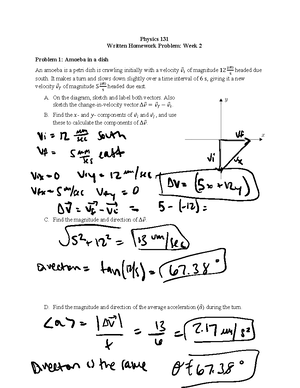 Physics 131
Written Homework Problem: Week 2
Problem 1: Amoeba in a dish
An amoeba is a petri dish is crawling initially with a velocity v⃗ᵢ of magnitude 12 μm/s headed due
south. It makes a turn and slows down slightly over a time interval of 6 s, giving it a new
velocity v⃗f of magnitude 5 μm/s headed due east.
A. On the diagram, sketch and label both vectors. Also
sketch the change-in-velocity vector Δv⃗ = v⃗f − v⃗ᵢ.
y
x
Vi = 12 south
Vf
Vf = 5 east
Vi
B. Find the x- and y- components of v⃗ᵢ and v⃗f, and use
these to calculate the components of Δv⃗.
Vix = 0 Viy = 12 μm/sec
Vfx = 5 μm/s Vfy = 0
ΔV = (5x + 12y)
ΔV⃗ = V⃗f − V⃗i = 5 − (−12) =
C. Find the magnitude and direction of Δv⃗.
√5² + 12² = 13 μm/sec
Direction = tan(12/5) = 67.38°
D. Find the magnitude and direction of the average acceleration ⟨a⃗⟩ during the turn.
<a> = |ΔV⃗| / t = 13/6 = 2.17 μm/s²
Direction is the same θ = 67.38°